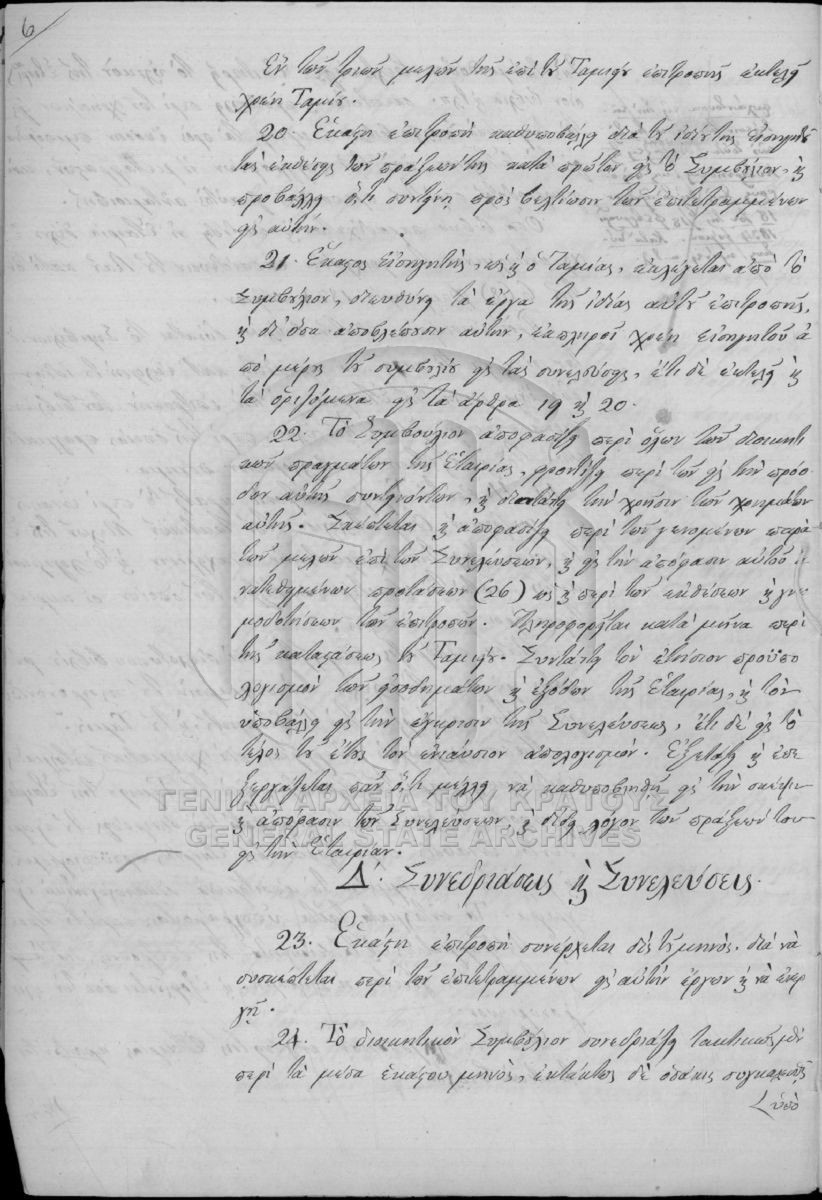 6
Εἷς τῶν τριῶν μελῶν τῆς ἐπὶ τοῦ Ταμείου ἐπιτροπῆς ἐκτελεῖ
χρέη Ταμίου.
20 Ἑκάστη ἐπιτροπὴ καθυποβάλλει διὰ τοῦ ἰδίου της εἰσηγητοῦ
τὰς ἐκθέσεις τῶν πράξεών της κατὰ πρῶτον εἰς τὸ Συμβούλιον, καὶ
προβάλλει ὅ,τι συντείνει πρὸς βελτίωσιν τῶν ἐπιτετραμμένων
εἰς αὐτήν.
21. Ἕκαστος εἰσηγητής, ὡς καὶ ὁ Ταμίας, ἐκλέγεται ἀπὸ τὸ
Συμβούλιον, διευθύνει τὰ ἔργα τῆς ἰδίας αὐτοῦ ἐπιτροπῆς,
καὶ δι' ὅσα ἀποβλέπουσιν αὐτήν, ἐκπληροῖ χρέη εἰσηγητοῦ ἀ
πὸ μέρους τοῦ συμβουλίου εἰς τὰς συνελεύσεις, ἔτι δὲ ἐκτελεῖ καὶ
τὰ ὁριζόμενα εἰς τὰ ἄρθρα 19 καὶ 20.
22. Τὸ Συμβούλιον ἀποφασίζει περὶ ὅλων τῶν διοικητι
κῶν πραγμάτων τῆς Ἑταιρίας, φροντίζει περὶ τῶν εἰς τὴν πρόο
δον αὐτῆς συντεινόντων, καὶ διατάττει τὴν χρῆσιν τῶν χρημάτων
αὐτῆς. Σκέπτεται καὶ ἀποφασίζει περὶ τῶν γενομένων παρὰ
τῶν μελῶν ἐπὶ τῶν Συνελεύσεων, καὶ εἰς τὴν ἀπόφασιν αὐτοῦ ἀ
νατεθειμένων προτάσεων (26) ὡς καὶ περὶ τῶν ἐκθέσεων καὶ γνω
μοδοτήσεων τῶν ἐπιτροπῶν. Πληροφορεῖται κατὰ μῆνα περὶ
τῆς καταστάσεως τοῦ Ταμείου. Συντάττει τὸν ἐτήσιον προϋπο
λογισμὸν τῶν εἰσοδημάτων καὶ ἐξόδων τῆς Ἑταιρίας, καὶ τὸν
ὑποβάλλει εἰς τὴν ἔγκρισιν τῆς Συνελεύσεως, ἔτι δὲ εἰς τὸ
τέλος τοῦ ἔτους τὸν ἐνιαύσιον ἀπολογισμόν. Ἐξετάζει καὶ ἐπε
ξεργάζεται πᾶν ὅ,τι μέλλει νὰ καθυποβληθῇ εἰς τὴν σκέψιν
καὶ ἀπόφασιν τῶν Συνελεύσεων, καὶ δίδει λόγον τῶν πράξεών του
εἰς τὴν Ἑταιρίαν.
Δ'. Συνεδριάσεις καὶ Συνελεύσεις.
23. Ἑκάστη ἐπιτροπὴ συνέρχεται δὶς τοῦ μηνός, διὰ νὰ
συσκέπτεται περὶ τῶν ἐπιτετραμμένων εἰς αὐτὴν ἔργων καὶ νὰ ἐνερ
γῇ.
24. Τὸ διοικητικὸν Συμβούλιον συνεδριάζει τακτικῶς μὲν
περὶ τὰ μέσα ἑκάστου μηνός, ἐκτάκτως δὲ ὁσάκις συγκαλεσθῇ
ὑπὸ
ΓΕΝΙΚΑ ΑΡΧΕΙΑ ΤΟΥ ΚΡΑΤΟΥΣ
GENERAL STATE ARCHIVES